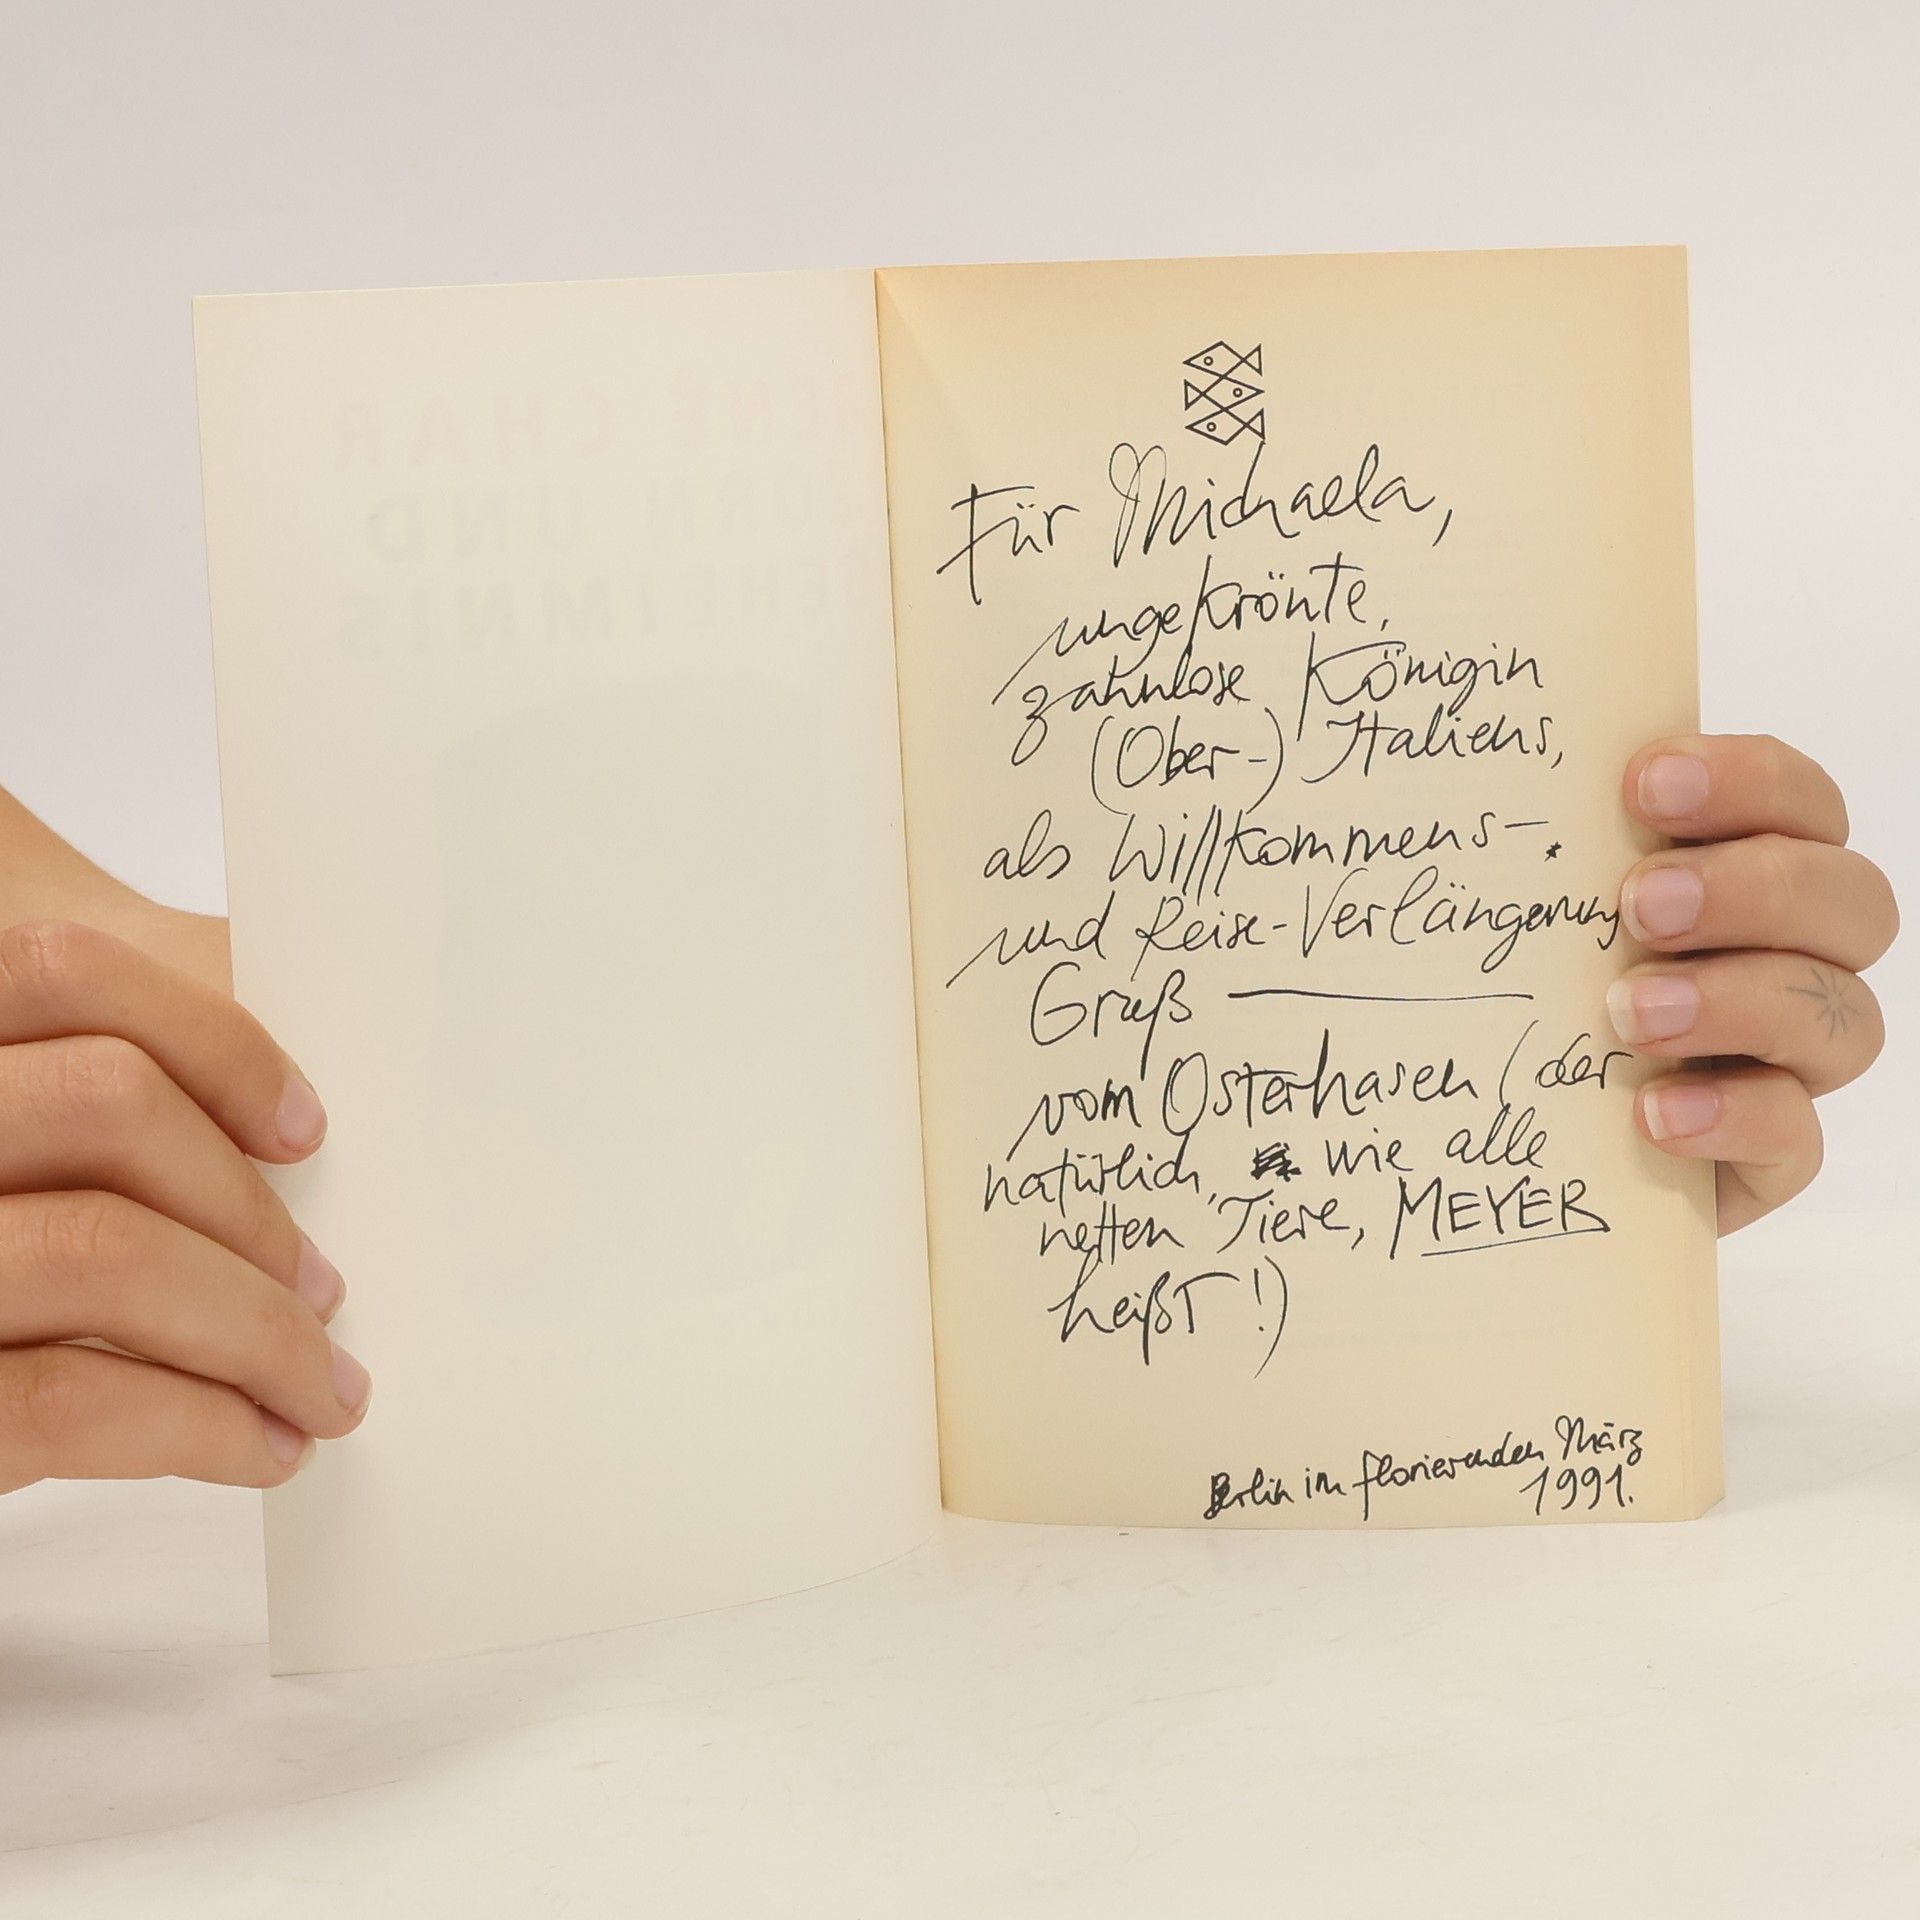 Für Michaela,
ungekrönte,
zahnlose Königin
(Ober-) Italiens,
als Willkommens-
und Reise-Verlängerung
Gruß
vom Osterhasen (der
natürlich, wie alle
netten Tiere, MEYER
heißt!)
Berlin im florierenden März
1991.